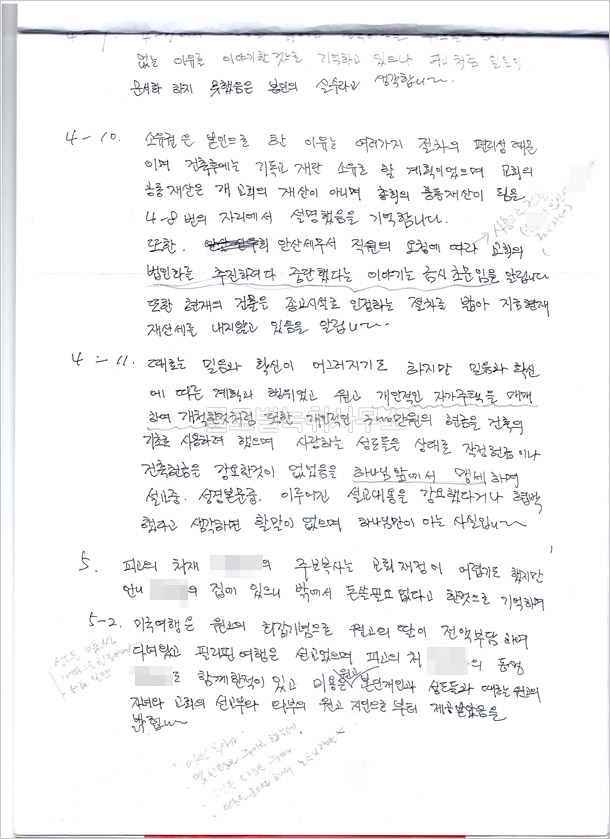 없는 이유로 이야기한것으로 기억하고 있으나
문서화 하지 못했음은 본인의 실수라고 생각합니다.
4-10. 소유권은 본인으로 한 이유는 여러가지 절차의 편리성 때문
이며 건축후에는 기독교 재단 소유로 할 계획이었으며 교회의
공동재산은 개 교회의 재산이 아니며 총회의 공동재산이 됨을
4-8번의 자리에서 설명했음을 기억합니다.
또한, 안산세무서 직원의 요청에 따라 교회의
법인화를 추진하려다 중단했다는 이야기는 금시초문임을 알립니다
또한 현재의 건물은 종교시설로 인정하는 절차를 밟아 지금현재
재산세를 내지않고 있음을 알립니다.
4-11. 때로는 믿음과 확신이 어그러지기도 하지만 믿음과 확신
에 따른 계획과 행위였고 원고 개인적인 자가주택을 매매
하여 개척한것처럼 또한 개인적인 현금을 건축의
기초로 사용하려 했으며 사랑하는 성도들을 상대로 작정헌금이나
건축헌금을 강요한것이 없었음을 하나님 앞에서 맹세하며
설교중, 성경본문중, 이루어진 설교내용을 강요했다거나 협박
했다고 생각하면 할말이 없으며 하나님만이 아는 사실입니다
5. 피고의 처재 의 주보복사는 교회재정이 어렵기도 했지만
언니 의 집에 있으니 밖에서 돈쓸필요없다고 한것으로 기억하며
5-2. 미국여행은 원고의 환갑기념으로 원고의 딸이 전액부담하여
다녀왔고 필리핀여행은 선교였으며 피고의 처 의 동생
도 함께한적이 있고 비용은 원고 본인개인과 성도들과 때로는 원고의
자녀와 교회의 선교부나 타부의 원고 지인으로부터 제공받았음을
밝힙니다